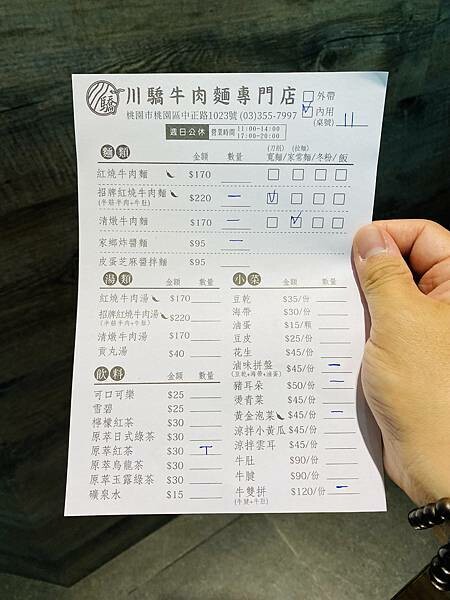 驕 川驕牛肉麵專門店 □外帶
桃園市桃園區中正路1023號 (03)355-7997 ☑內用
(桌號) 11
週日公休 營業時間 11:00~14:00
17:00~20:00
麵類 金額 數量 (刀削) (拉麵)
寬麵/家常麵/冬粉/飯
紅燒牛肉麵 $170 □ □ □ □
招牌紅燒牛肉麵 $220 一 ☑ □ □ □
(半筋半肉+牛肚)
清燉牛肉麵 $170 一 □ ☑ □ □
家鄉炸醬麵 $95 一
皮蛋芝麻醬拌麵 $95
湯類 金額 數量
紅燒牛肉湯 $170
招牌紅燒牛肉湯 $220
(半筋半肉+牛肚)
清燉牛肉湯 $170
貢丸湯 $40
飲料 金額 數量
可口可樂 $25
雪碧 $25
檸檬紅茶 $30
原萃日式綠茶 $30
原萃紅茶 $30 T
原萃烏龍茶 $30
原萃玉露綠茶 $30
礦泉水 $15
小菜 金額 數量
豆乾 $35/份
海帶 $30/份
滷蛋 $15/顆
豆皮 $25/份
花生 $45/份
滷味拼盤 $45/份 一
(豆乾+海帶+滷蛋)
豬耳朵 $50/份 一
燙青菜 $45/份
黃金泡菜 $45/份 一
涼拌小黃瓜 $45/份
涼拌雲耳 $45/份
牛肚 $90/份
牛腱 $90/份
牛雙拼 $120/份 一
(牛腱+牛肚)